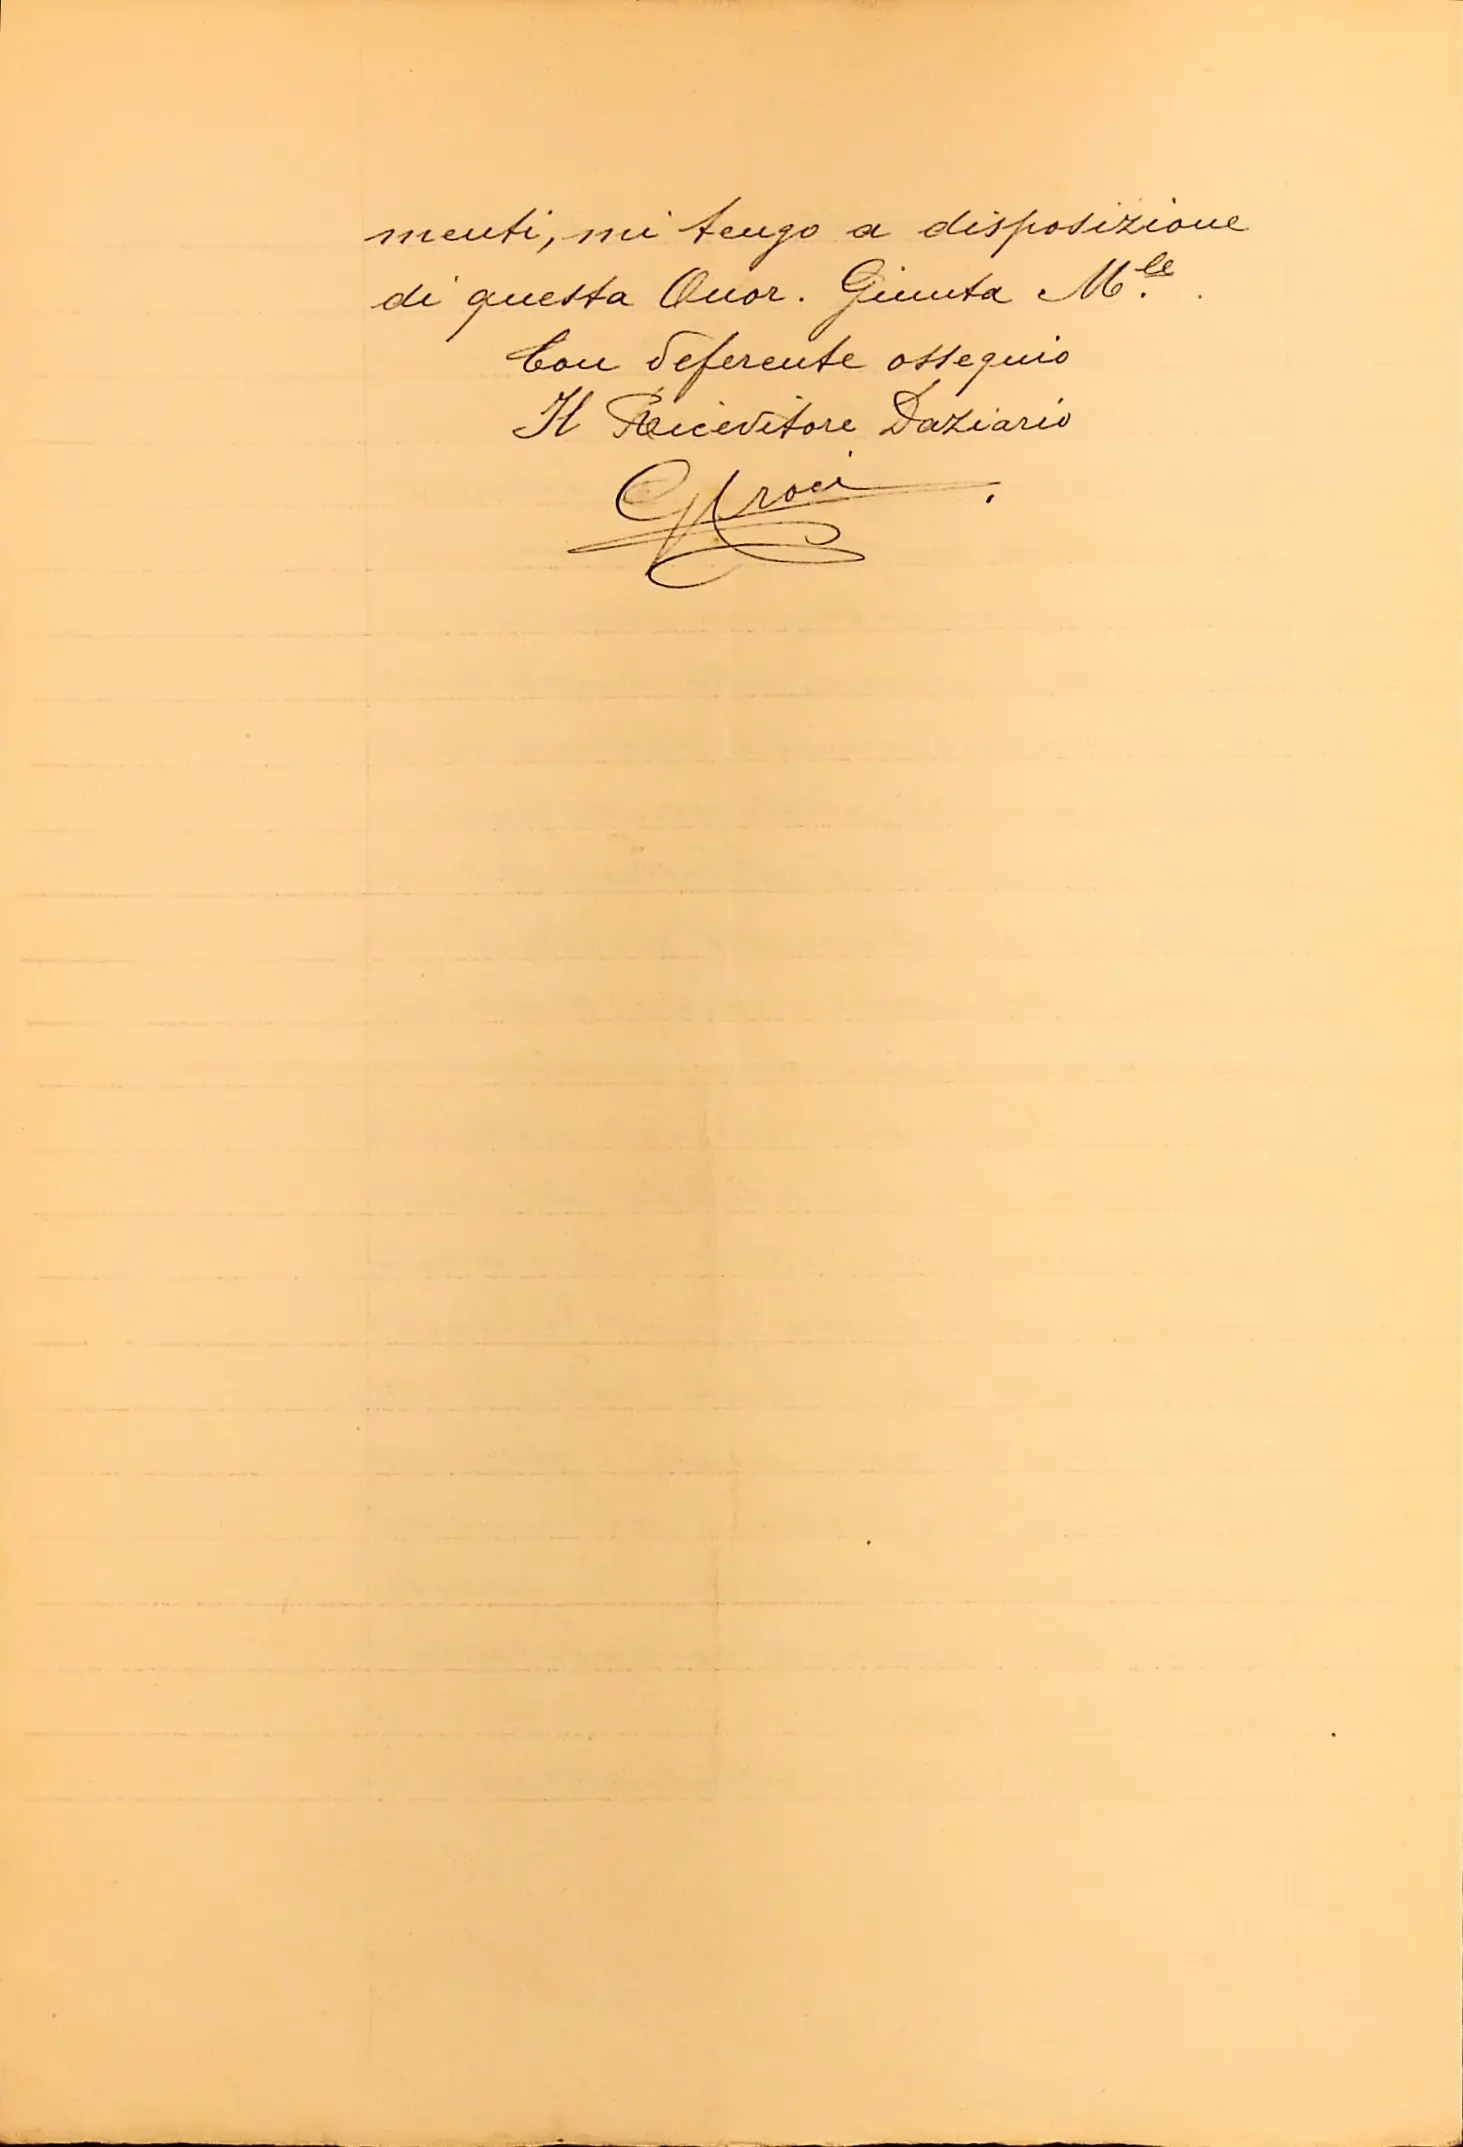 menti, mi tengo a disposizione
di questa Onor. Giunta M.le.
Con deferente ossequio
Il Ricevitore Daziario